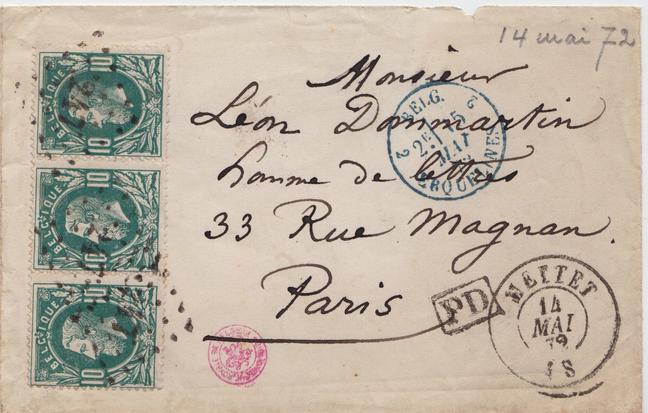 14 mai 72
Monsieur
Léon Dommartin
homme de lettres
33 Rue Magnan.
Paris
PD
METTET
14
MAI
72
BELG.
15
MAI
ERQUELINES
2 2
BELGIQUE
10 10
BELGIQUE
10 10
BELGIQUE
10 10